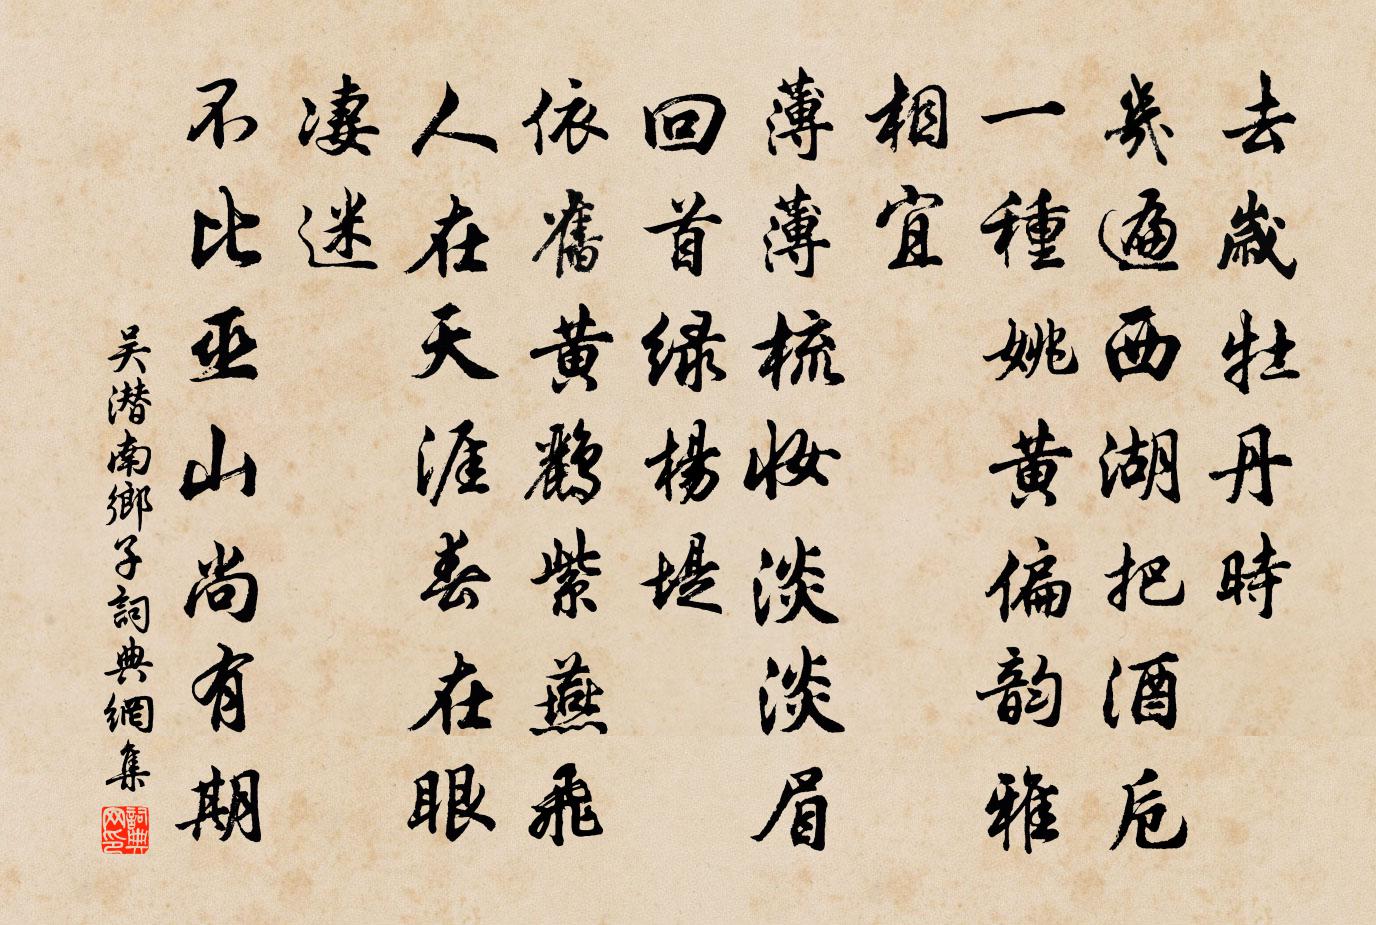 去歲牡丹時
幾遍西湖把酒卮
一種姚黄偏韵雅
相宜
薄薄梳妆淡淡眉
回首绿楊堤
依舊黄鸝紫燕飛
人在天涯春在眼
凄迷
不比巫山尚有期
吴潜南鄉子詞典網集
詞典网印